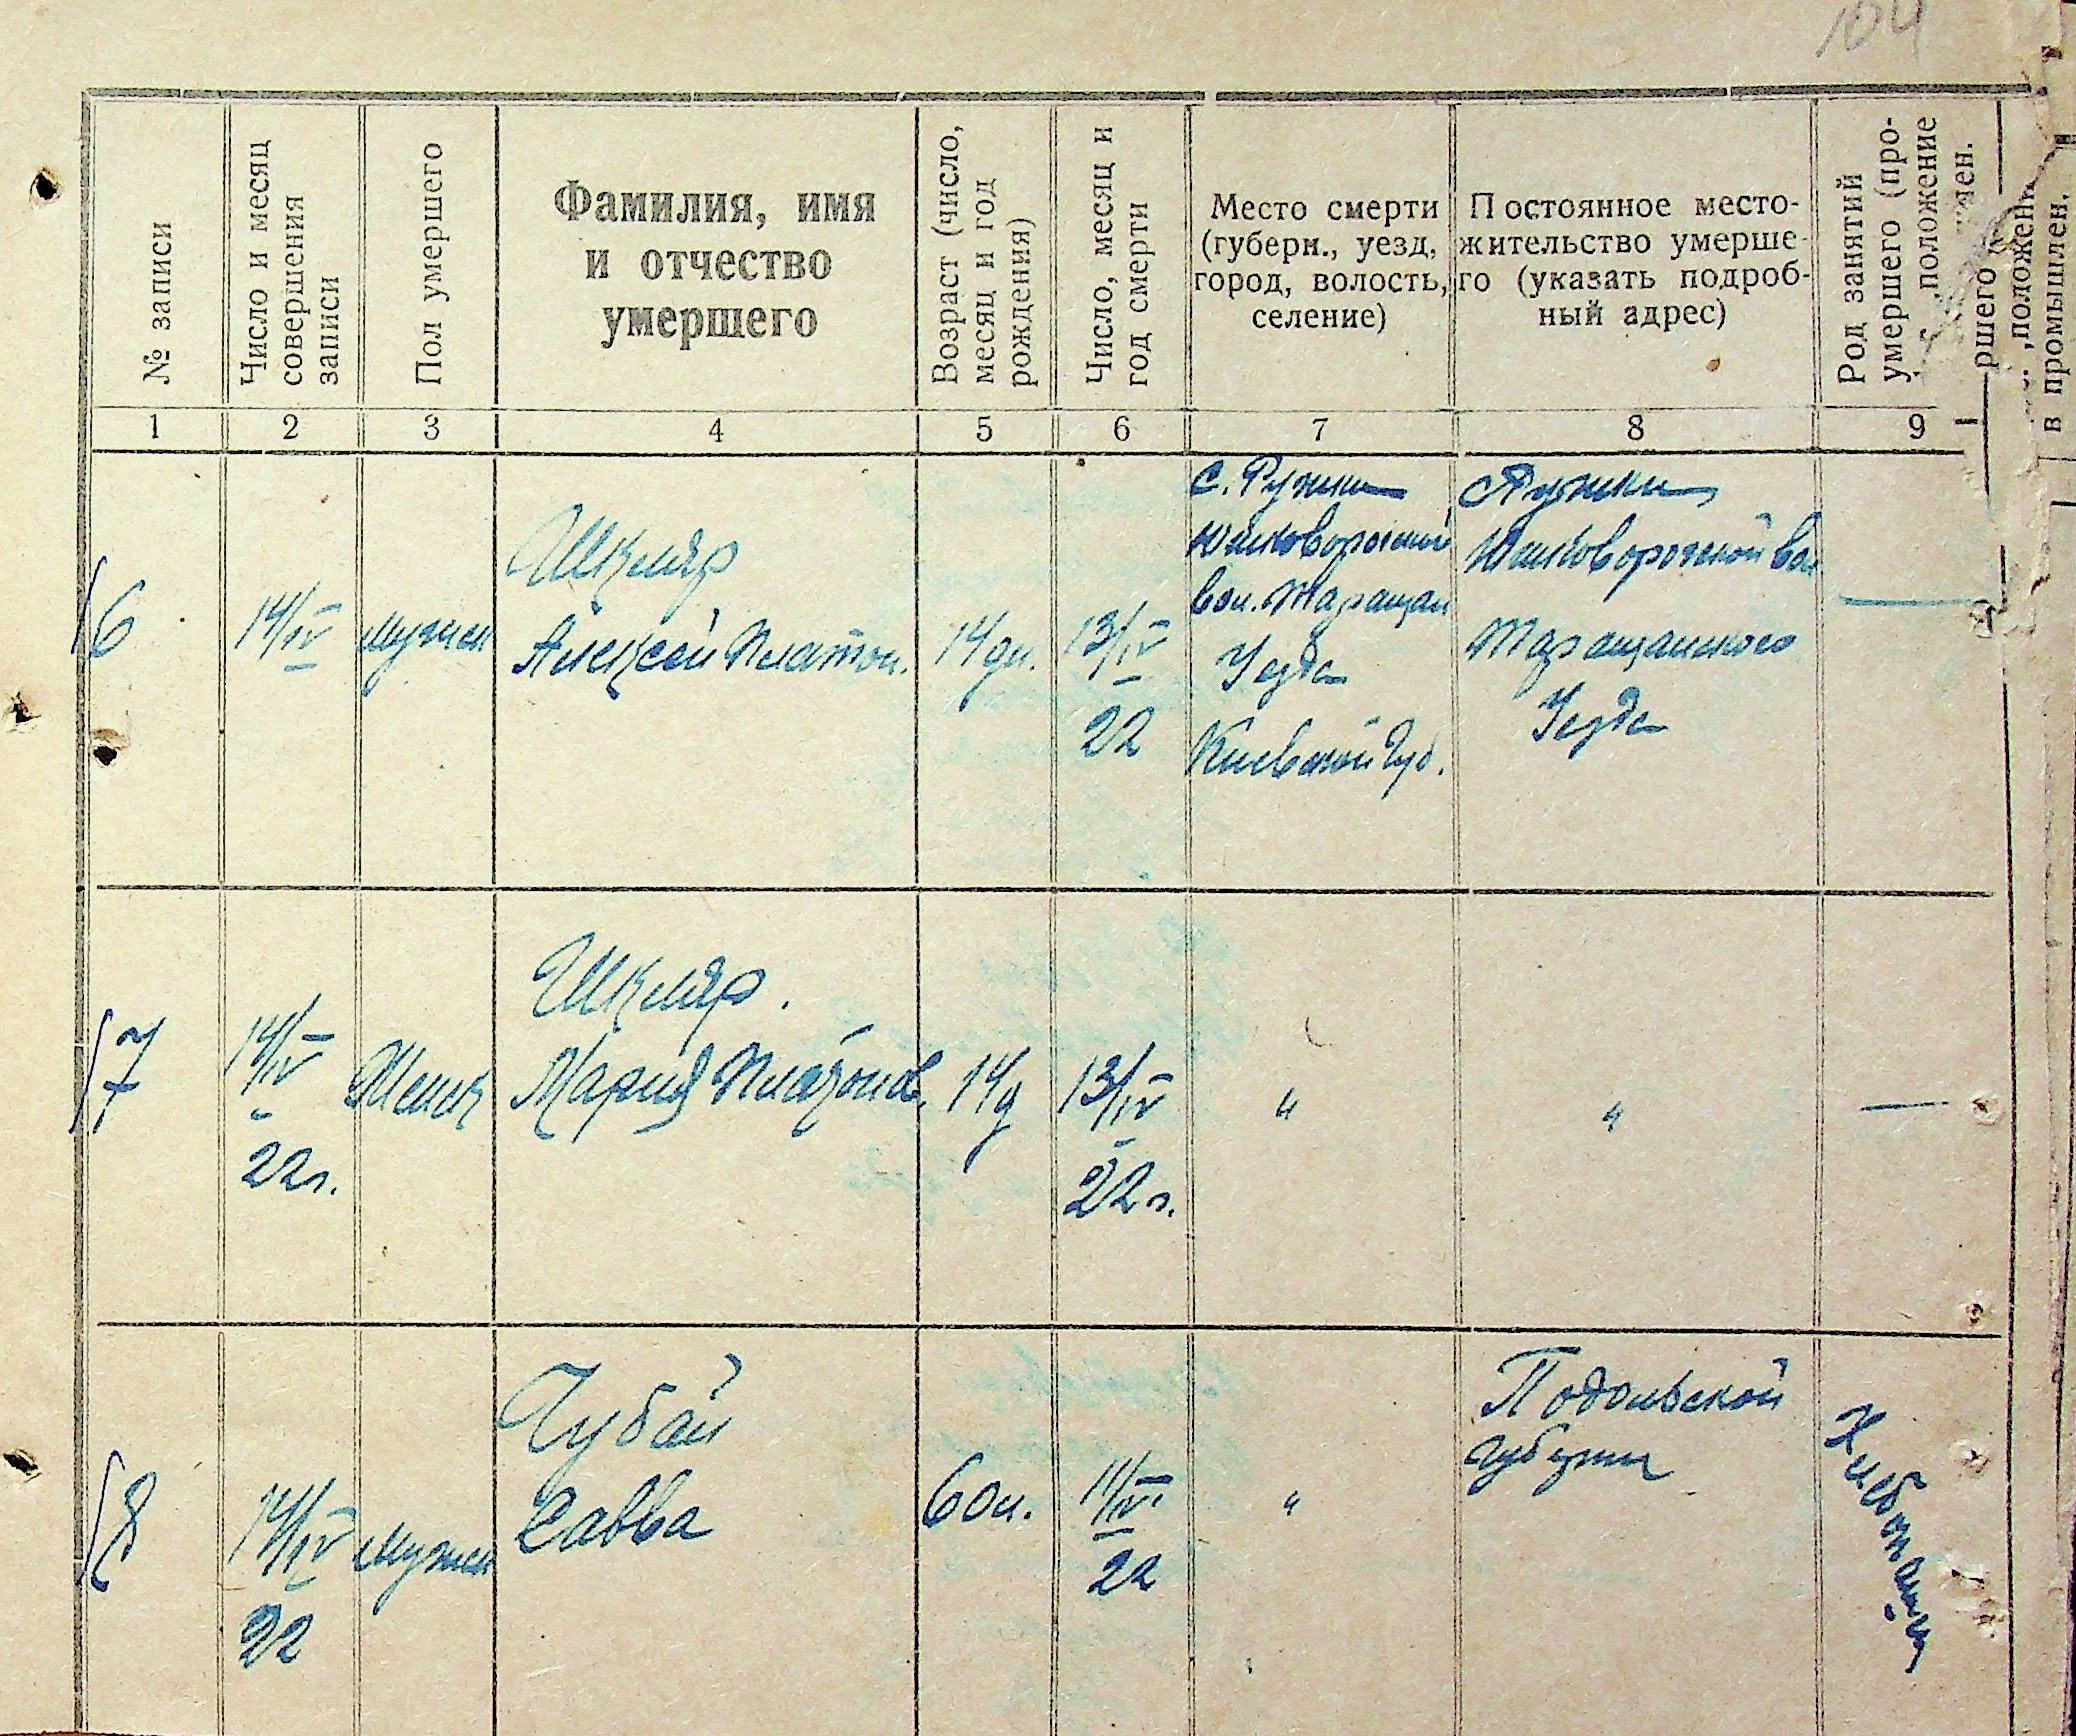 104
№ записи
Число и месяц
совершения
записи
Пол умершего
Фамилия, имя
и отчество
умершего
Возраст (число,
месяц и год
рождения)
Число, месяц и
год смерти
Место смерти
(губерн., уезд,
город, волость,
селение)
Постоянное место-
жительство умерше-
го (указать подроб-
ный адрес)
Род занятий
умершего (про-
положение
ршего
положен
в промышлен.
1 2 3 4 5 6 7 8 9
16
14/IV
мужск
Шкляр
Алексей Платон.
14 дн.
13/IV
22
с.
вол. Таращан
Уезда
Киевской Губ.
вол
Таращанского
Уезда
—
17
14/IV
22г.
Женск
Шкляр.
Мария Платонов.
14д
13/IV
22г.
"
"
—
18
14/IV
22
мужск
Чубай
Савва
60л.
11/IV
22
"
Подольской
губерни
Хлебопашец